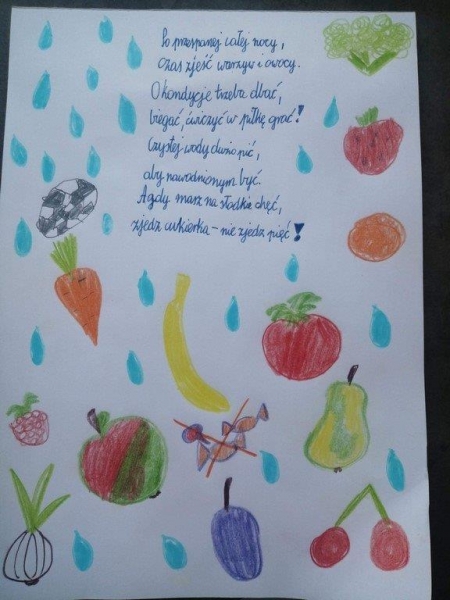 Po przespanej całej nocy,
czas zjeść warzywa i owocy.
O kondycję trzeba dbać,
biegać, ćwiczyć w piłkę grać!
Czystej wody dużo pić,
aby nawodnionym być.
A gdy masz na słodkie chęć,
zjedz cukierka - nie zjedz pięć!